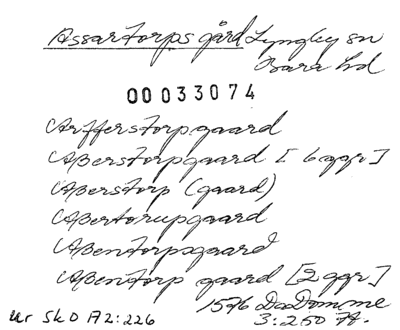 Assartorps gård Lyngby sn
Bara hd
00033074
Arfferstorpgaard
Aberstorpgaard [6 ggr]
Aberstorp (gaard)
Abertorupgaard
Abentorpsgaard
Abentorp gaard [2 ggr]
1576 DaDomme
ur SkO A2:226 3:250 ff.